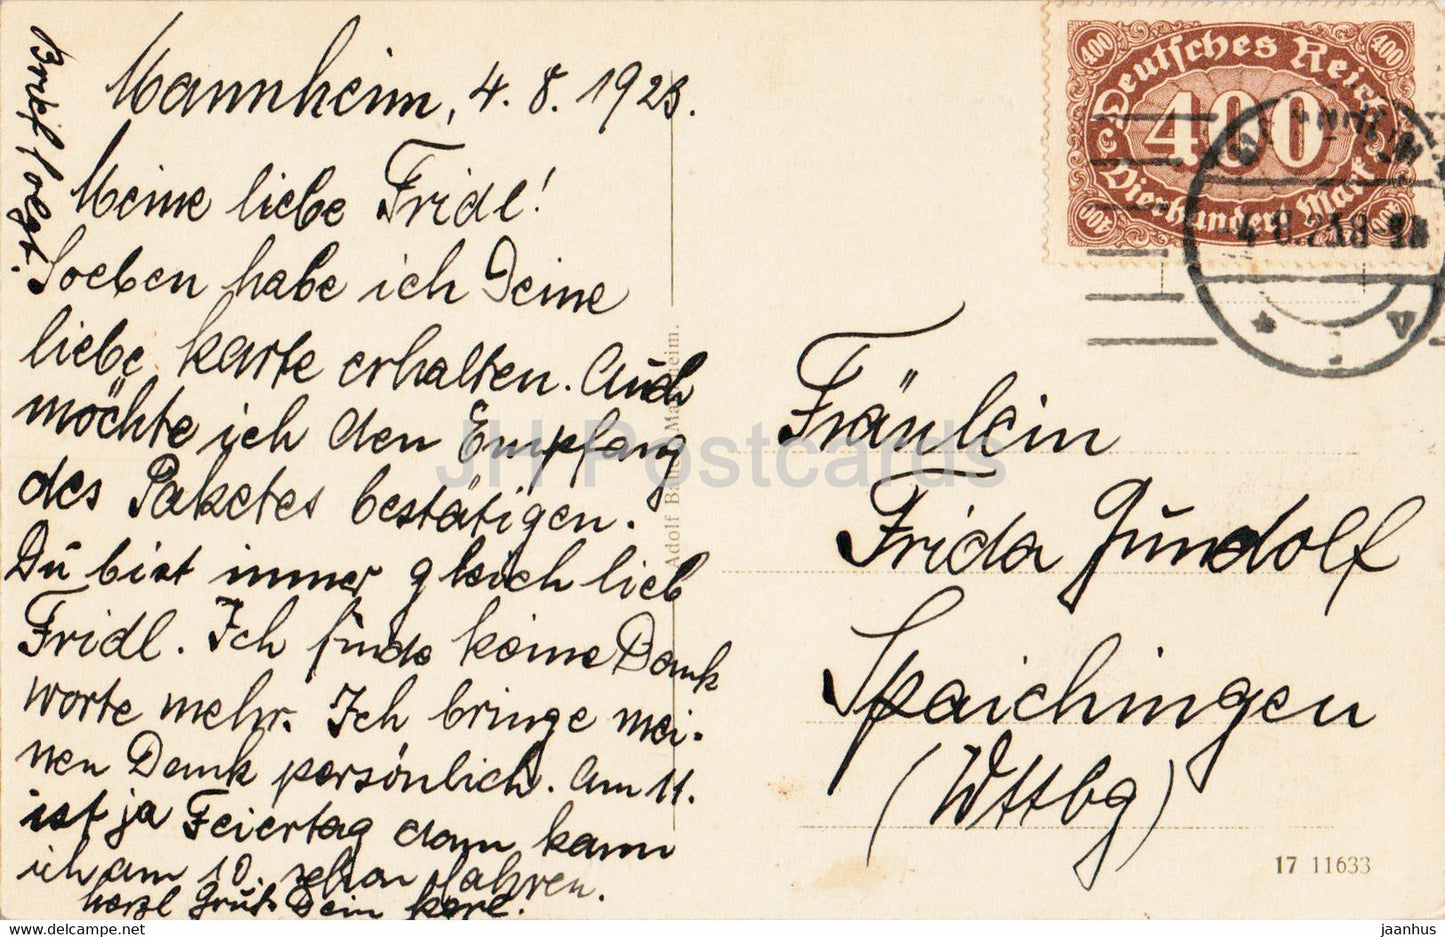 Brief folgt.
Mannheim, 4. 8. 1923.
Meine liebe Fridl!
Soeben habe ich Deine
liebe Karte erhalten. Auch
möchte ich den Empfang
des Paketes bestätigen.
Du bist immer gleich lieb
Fridl. Ich finde keine Dank
worte mehr. Ich bringe mei-
nen Dank persönlich. Am 11.
ist ja Feiertag dann kann
ich am 10. schon fahren.
herzl Gruß Dein Karl.
Deutsches Reich
400
400
400
Vierhundert Mark
400
400
4.8.23.8-9N
V
Adolf Mannheim.
Fräulein
Frida Gundolf
Spaichingen
(Wttbg)
17 11633
JH Postcards
jaanhus